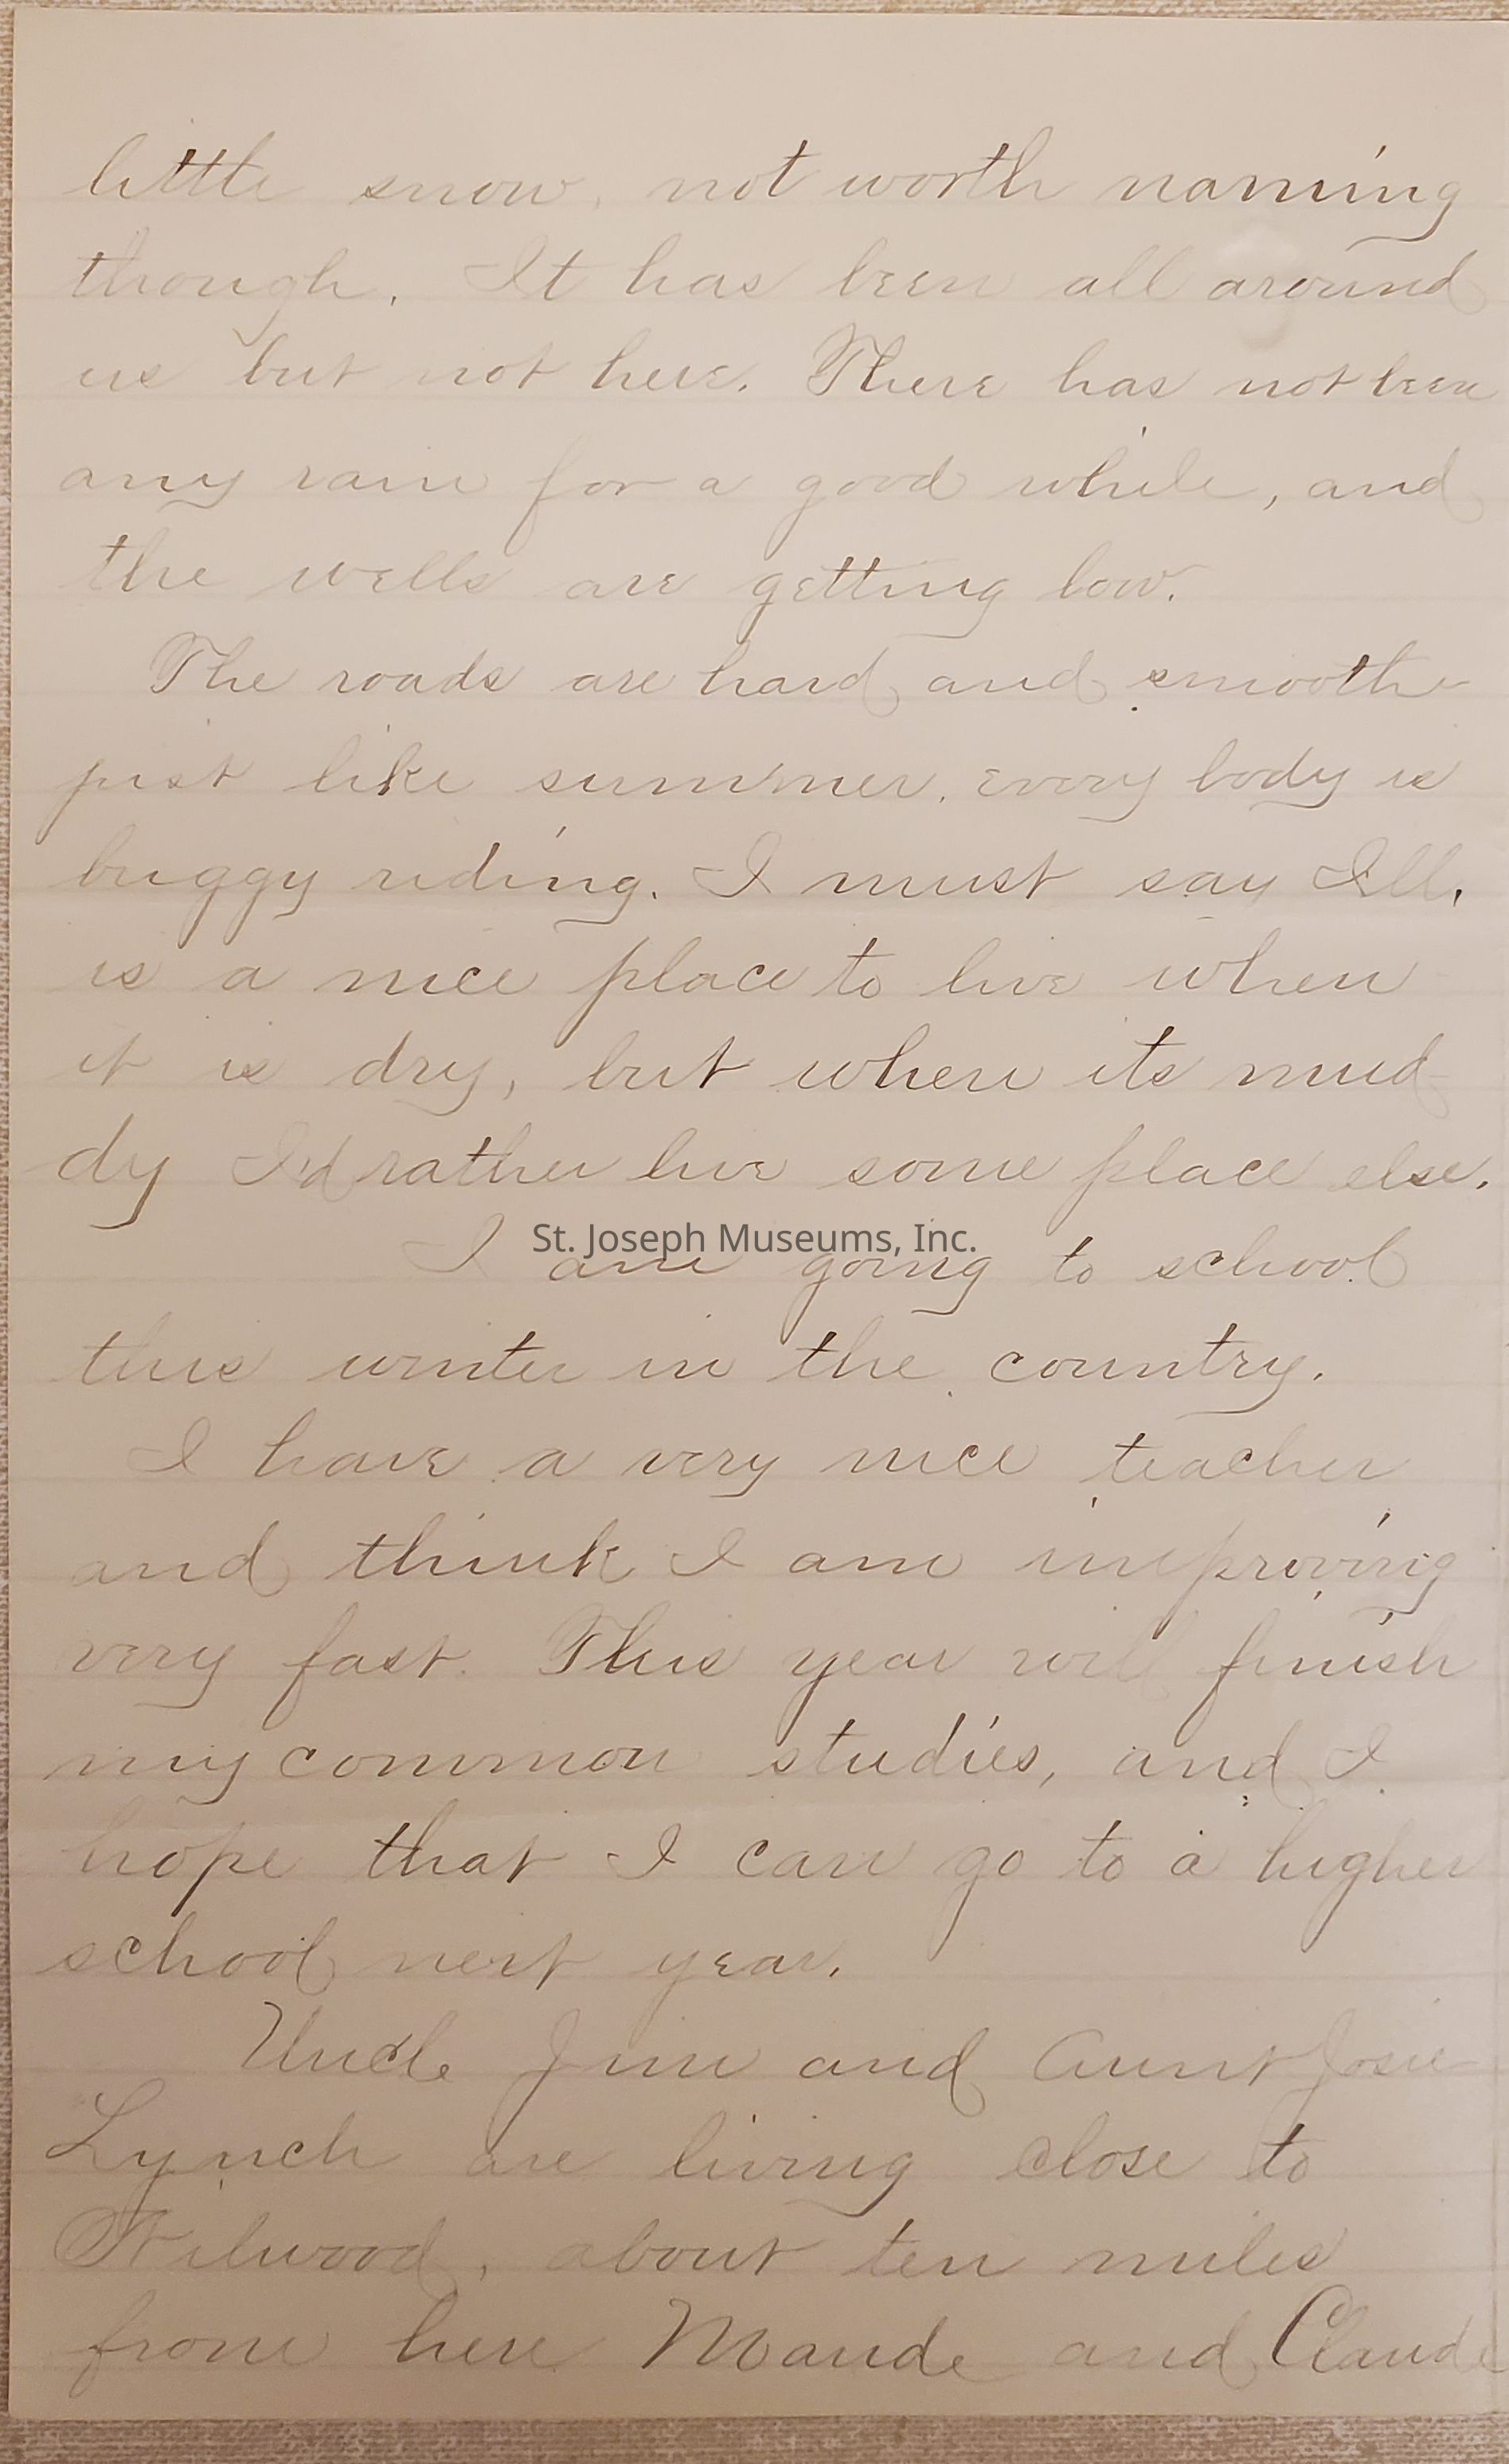 little snow, not worth naming
though. It has been all around
us but not here. There has not been
any rain for a good while, and
the wells are getting low.
The roads are hard and smooth
just like summer, every body is
buggy riding. I must say Ill.
is a nice place to live when
it is dry, but when its mud
dy I'd rather live some place else.
St. Joseph Museums, Inc.
I am going to school
this winter in the country.
I have a very nice teacher
and think I am improving
very fast. This year will finish
my common studies, and I
hope that I can go to a higher
school next year.
Uncle Jim and Aunt Josie
Lynch are living close to
about ten miles
from here Maude and Claude